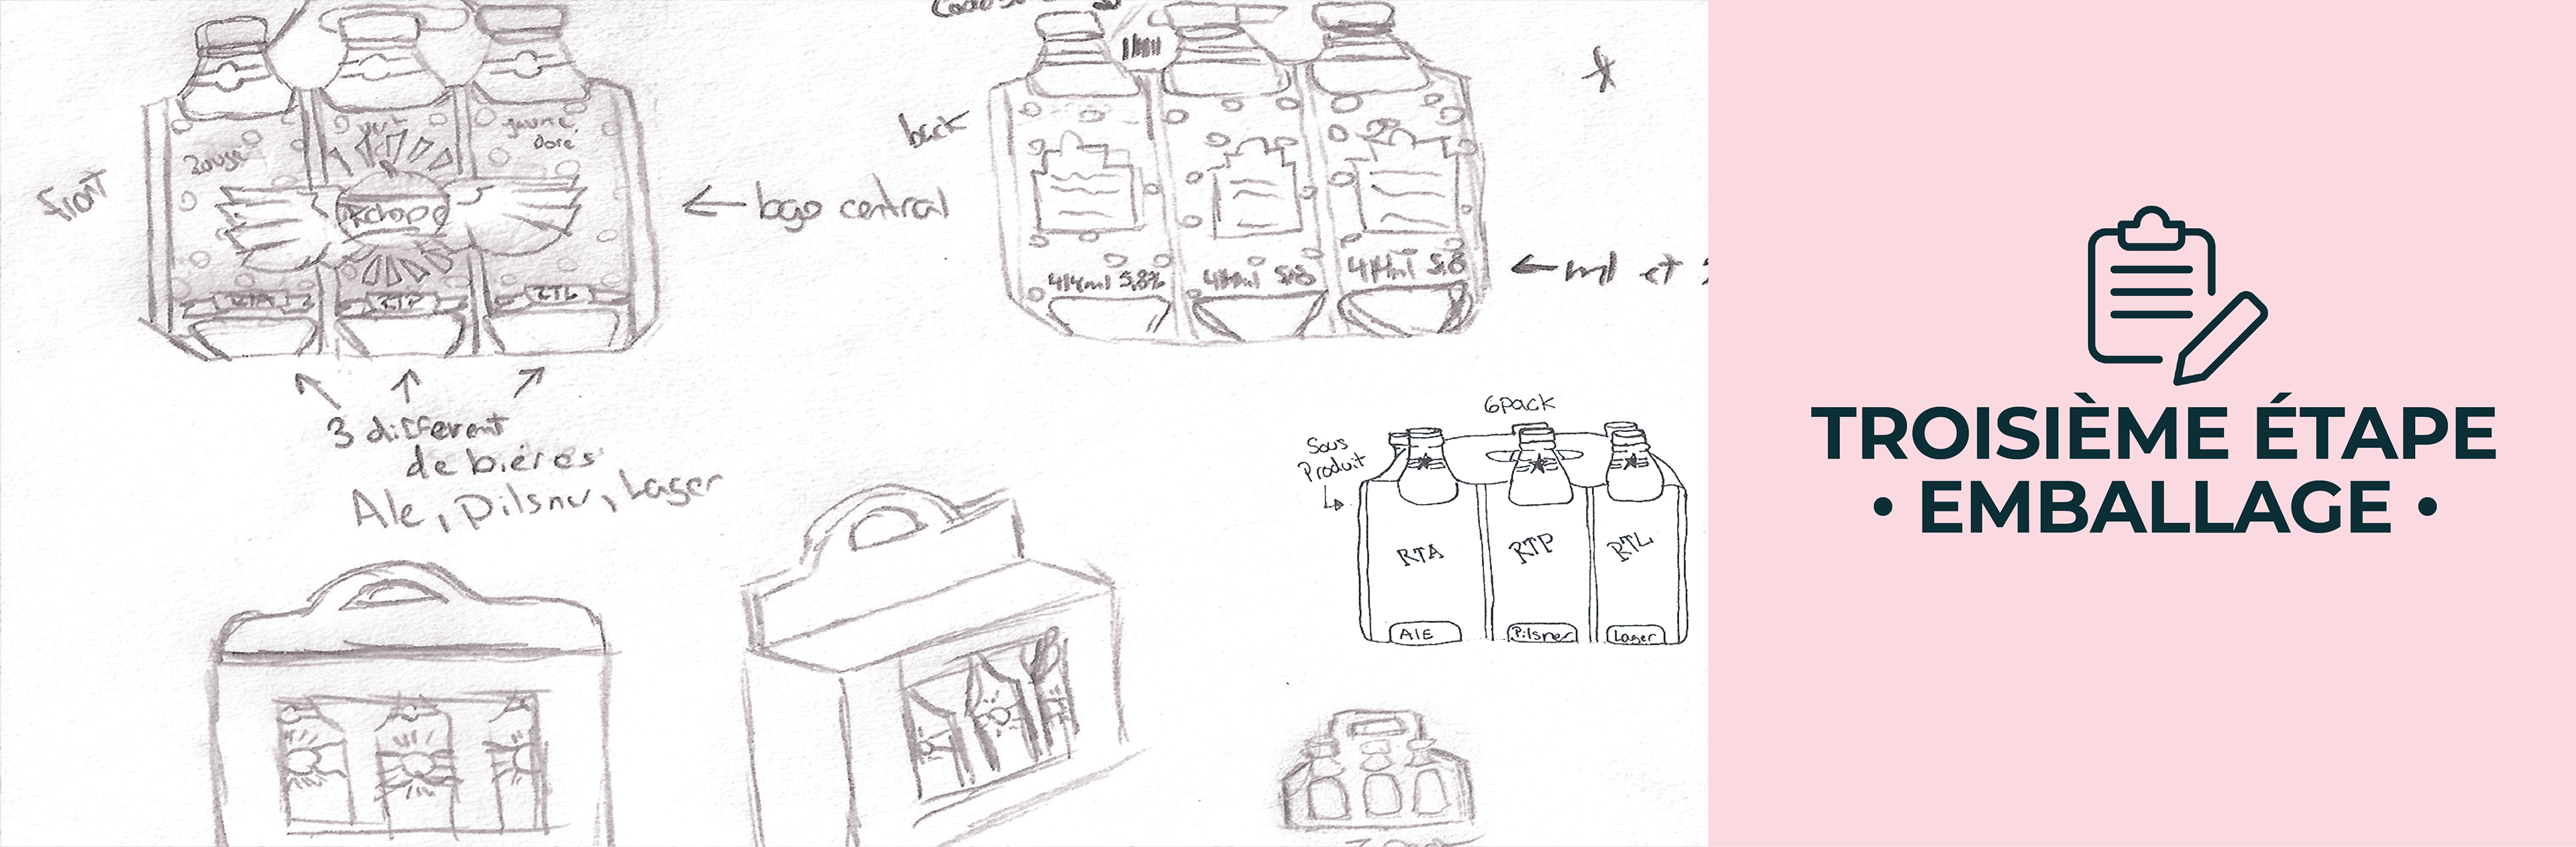 front
Rouge
vert
jaune
doré
RTA
RTP
RTL
← logo central
3 different
de bières
Ale, Pilsner, Lager
back
414ml 5,8%
414ml 5,8
414ml 5,8
← ml et
6pack
Sous
Produit
RTA
RTP
RTL
Ale
Pilsner
Lager
TROISIÈME ÉTAPE
• EMBALLAGE •